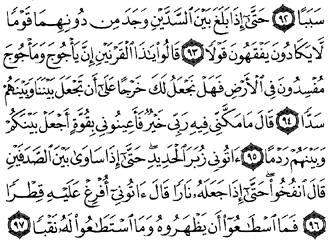 سَبَبًا ۝٩٢ حَتَّىٰٓ إِذَا بَلَغَ بَيْنَ ٱلسَّدَّيْنِ وَجَدَ مِن دُونِهِمَا قَوْمًا
لَّا يَكَادُونَ يَفْقَهُونَ قَوْلًا ۝٩٣ قَالُوا۟ يَٰذَا ٱلْقَرْنَيْنِ إِنَّ يَأْجُوجَ وَمَأْجُوجَ
مُفْسِدُونَ فِى ٱلْأَرْضِ فَهَلْ نَجْعَلُ لَكَ خَرْجًا عَلَىٰٓ أَن تَجْعَلَ بَيْنَنَا وَبَيْنَهُمْ
سَدًّا ۝٩٤ قَالَ مَا مَكَّنِّى فِيهِ رَبِّى خَيْرٌ فَأَعِينُونِى بِقُوَّةٍ أَجْعَلْ بَيْنَكُمْ
وَبَيْنَهُمْ رَدْمًا ۝٩٥ ءَاتُونِى زُبَرَ ٱلْحَدِيدِ حَتَّىٰٓ إِذَا سَاوَىٰ بَيْنَ ٱلصَّدَفَيْنِ
قَالَ ٱنفُخُوا۟ حَتَّىٰٓ إِذَا جَعَلَهُۥ نَارًا قَالَ ءَاتُونِىٓ أُفْرِغْ عَلَيْهِ قِطْرًا
۝٩٦ فَمَا ٱسْطَٰعُوٓا۟ أَن يَظْهَرُوهُ وَمَا ٱسْتَطَٰعُوا۟ لَهُۥ نَقْبًا ۝٩٧